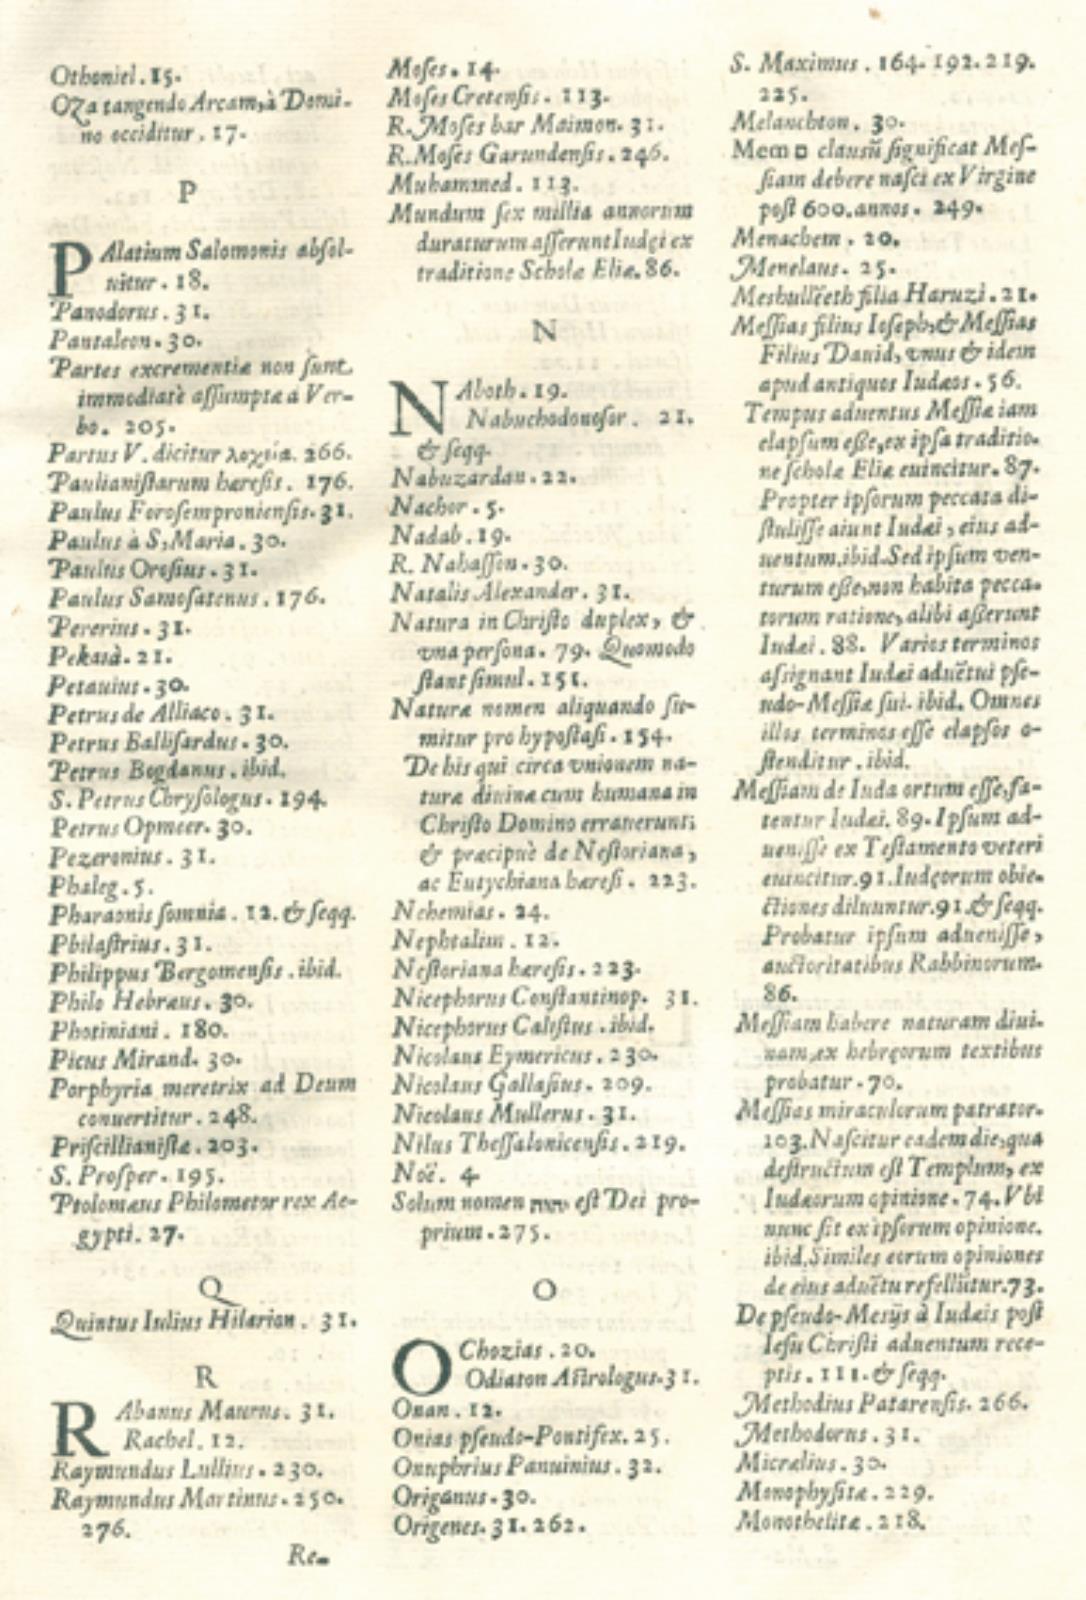 Othoniel. 15.
OZa tangendo Arcam, à Domi-
no occiditur. 17.
P
PAlatium Salomonis abſol-
uitur. 18.
Panodorus. 31.
Pantaleon. 30.
Partes excrementiæ non ſunt
immediatè aſſumptæ a Ver-
bo. 205.
Partus V. dicitur λοχεία. 266.
Paulianiſtarum hæreſis. 176.
Paulus Foroſempronienſis. 31.
Paulus à S. Maria. 30.
Paulus Oroſius. 31.
Paulus Samoſatenus. 176.
Pererius. 31.
Pekaià. 21.
Petauius. 30.
Petrus de Alliaco. 31.
Petrus Balliſardus. 30.
Petrus Bogdanus. ibid.
S. Petrus Chryſologus. 194.
Petrus Opmeer. 30.
Pezeronius. 31.
Phaleg. 5.
Pharaonis ſomnia. 12. & ſeqq.
Philaſtrius. 31.
Philippus Bergomenſis. ibid.
Philo Hebræus. 30.
Photiniani. 180.
Picus Mirand. 30.
Porphyria meretrix ad Deum
conuertitur. 248.
Priſcillianiſtæ. 203.
S. Proſper. 195.
Ptolomæus Philometor rex Ae-
gypti. 27.
Q
Quintus Iulius Hilarion. 31.
R
RAbanus Maurus. 31.
Rachel. 12.
Raymundus Lullius. 230.
Raymundus Martinus. 250.
276.
Re-
Moſes. 14.
Moſes Cretenſis. 113.
R. Moſes bar Maimon. 31.
R. Moſes Garundenſis. 246.
Muhammed. 113.
Mundum ſex millia annorum
duraturum aſſerunt Iudęi ex
traditione Scholæ Eliæ. 86.
N
NAboth. 19.
Nabuchodonoſor. 21.
& ſeqq.
Nabuzardan. 22.
Nachor. 5.
Nadab. 19.
R. Nahaſſon. 30.
Natalis Alexander. 31.
Natura in Chriſto duplex, &
vna perſona. 79. Quomodo
ſtant ſimul. 151.
Naturæ nomen aliquando ſu-
mitur pro hypoſtaſi. 154.
De his qui circa vnionem na-
turæ diuinæ cum humana in
Chriſto Domino errauerunt
& præcipuè de Neſtoriana,
ac Eutychiana hæreſi. 223.
Nehemias. 24.
Nephtalim. 12.
Neſtoriana hæreſis. 223.
Nicephorus Conſtantinop. 31.
Nicephorus Caliſtus. ibid.
Nicolaus Eymericus. 230.
Nicolaus Gallaſius. 209.
Nicolaus Mullerus. 31.
Nilus Theſſalonicenſis. 219.
Noë. 4.
Solum nomen יהוה eſt Dei pro-
prium. 275.
O
OChozias. 20.
Odiaton Aſtrologus. 31.
Onan. 12.
Onias pſeudo-Pontifex. 25.
Onuphrius Panuinius. 32.
Origanus. 30.
Origenes. 31. 262.
S. Maximus. 164. 192. 219.
225.
Melancthon. 30.
Mem ם clauſũ ſignificat Meſ-
ſiam debere naſci ex Virgine
poſt 600. annos. 249.
Menachem. 20.
Menelaus. 25.
Meshulléeth filia Haruzi. 21.
Meſſias filius Ioſeph, & Meſſias
Filius Dauid, vnus & idem
apud antiquos Iudæos. 56.
Tempus aduentus Meſſiæ iam
elapſum eſſe, ex ipſa traditio-
ne ſcholæ Eliæ euincitur. 87.
Propter ipſorum peccata di-
ſtuliſſe aiunt Iudæi, eius ad-
uentum. ibid. Sed ipſum ven-
turum eſſe, non habita pecca-
torum ratione, alibi aſſerunt
Iudæi. 88. Varios terminos
aſsignant Iudæi aduẽtui pſe-
udo-Meſſiæ ſui. ibid. Omnes
illos terminos eſſe elapſos o-
ſtenditur. ibid.
Meſſiam de Iuda ortum eſſe, fa-
tentur Iudæi. 89. Ipſum ad-
ueniſſe ex Teſtamento veteri
euincitur. 91. Iudęorum obie-
ctiones diluuntur. 91. & ſeqq.
Probatur ipſum adueniſſe,
auctoritatibus Rabbinorum.
86.
Meſſiam habere naturam diui-
nam, ex hebręorum textibus
probatur. 70.
Meſſias miraculorum patrator.
103. Naſcitur eadem die, qua
deſtructum eſt Templum, ex
Iudæorum opinione. 74. Vbi
nunc ſit ex ipſorum opinione.
ibid. Similes eorum opiniones
de eius aduẽtu refellũtur. 73.
De pſeudo-Mesijs à Iudæis poſt
Ieſu Chriſti aduentum rece-
ptis. 111. & ſeqq.
Methodius Patarenſis. 266.
Methodorus. 31.
Micrælius. 30.
Monophyſitæ. 229.
Monothelitæ. 218.